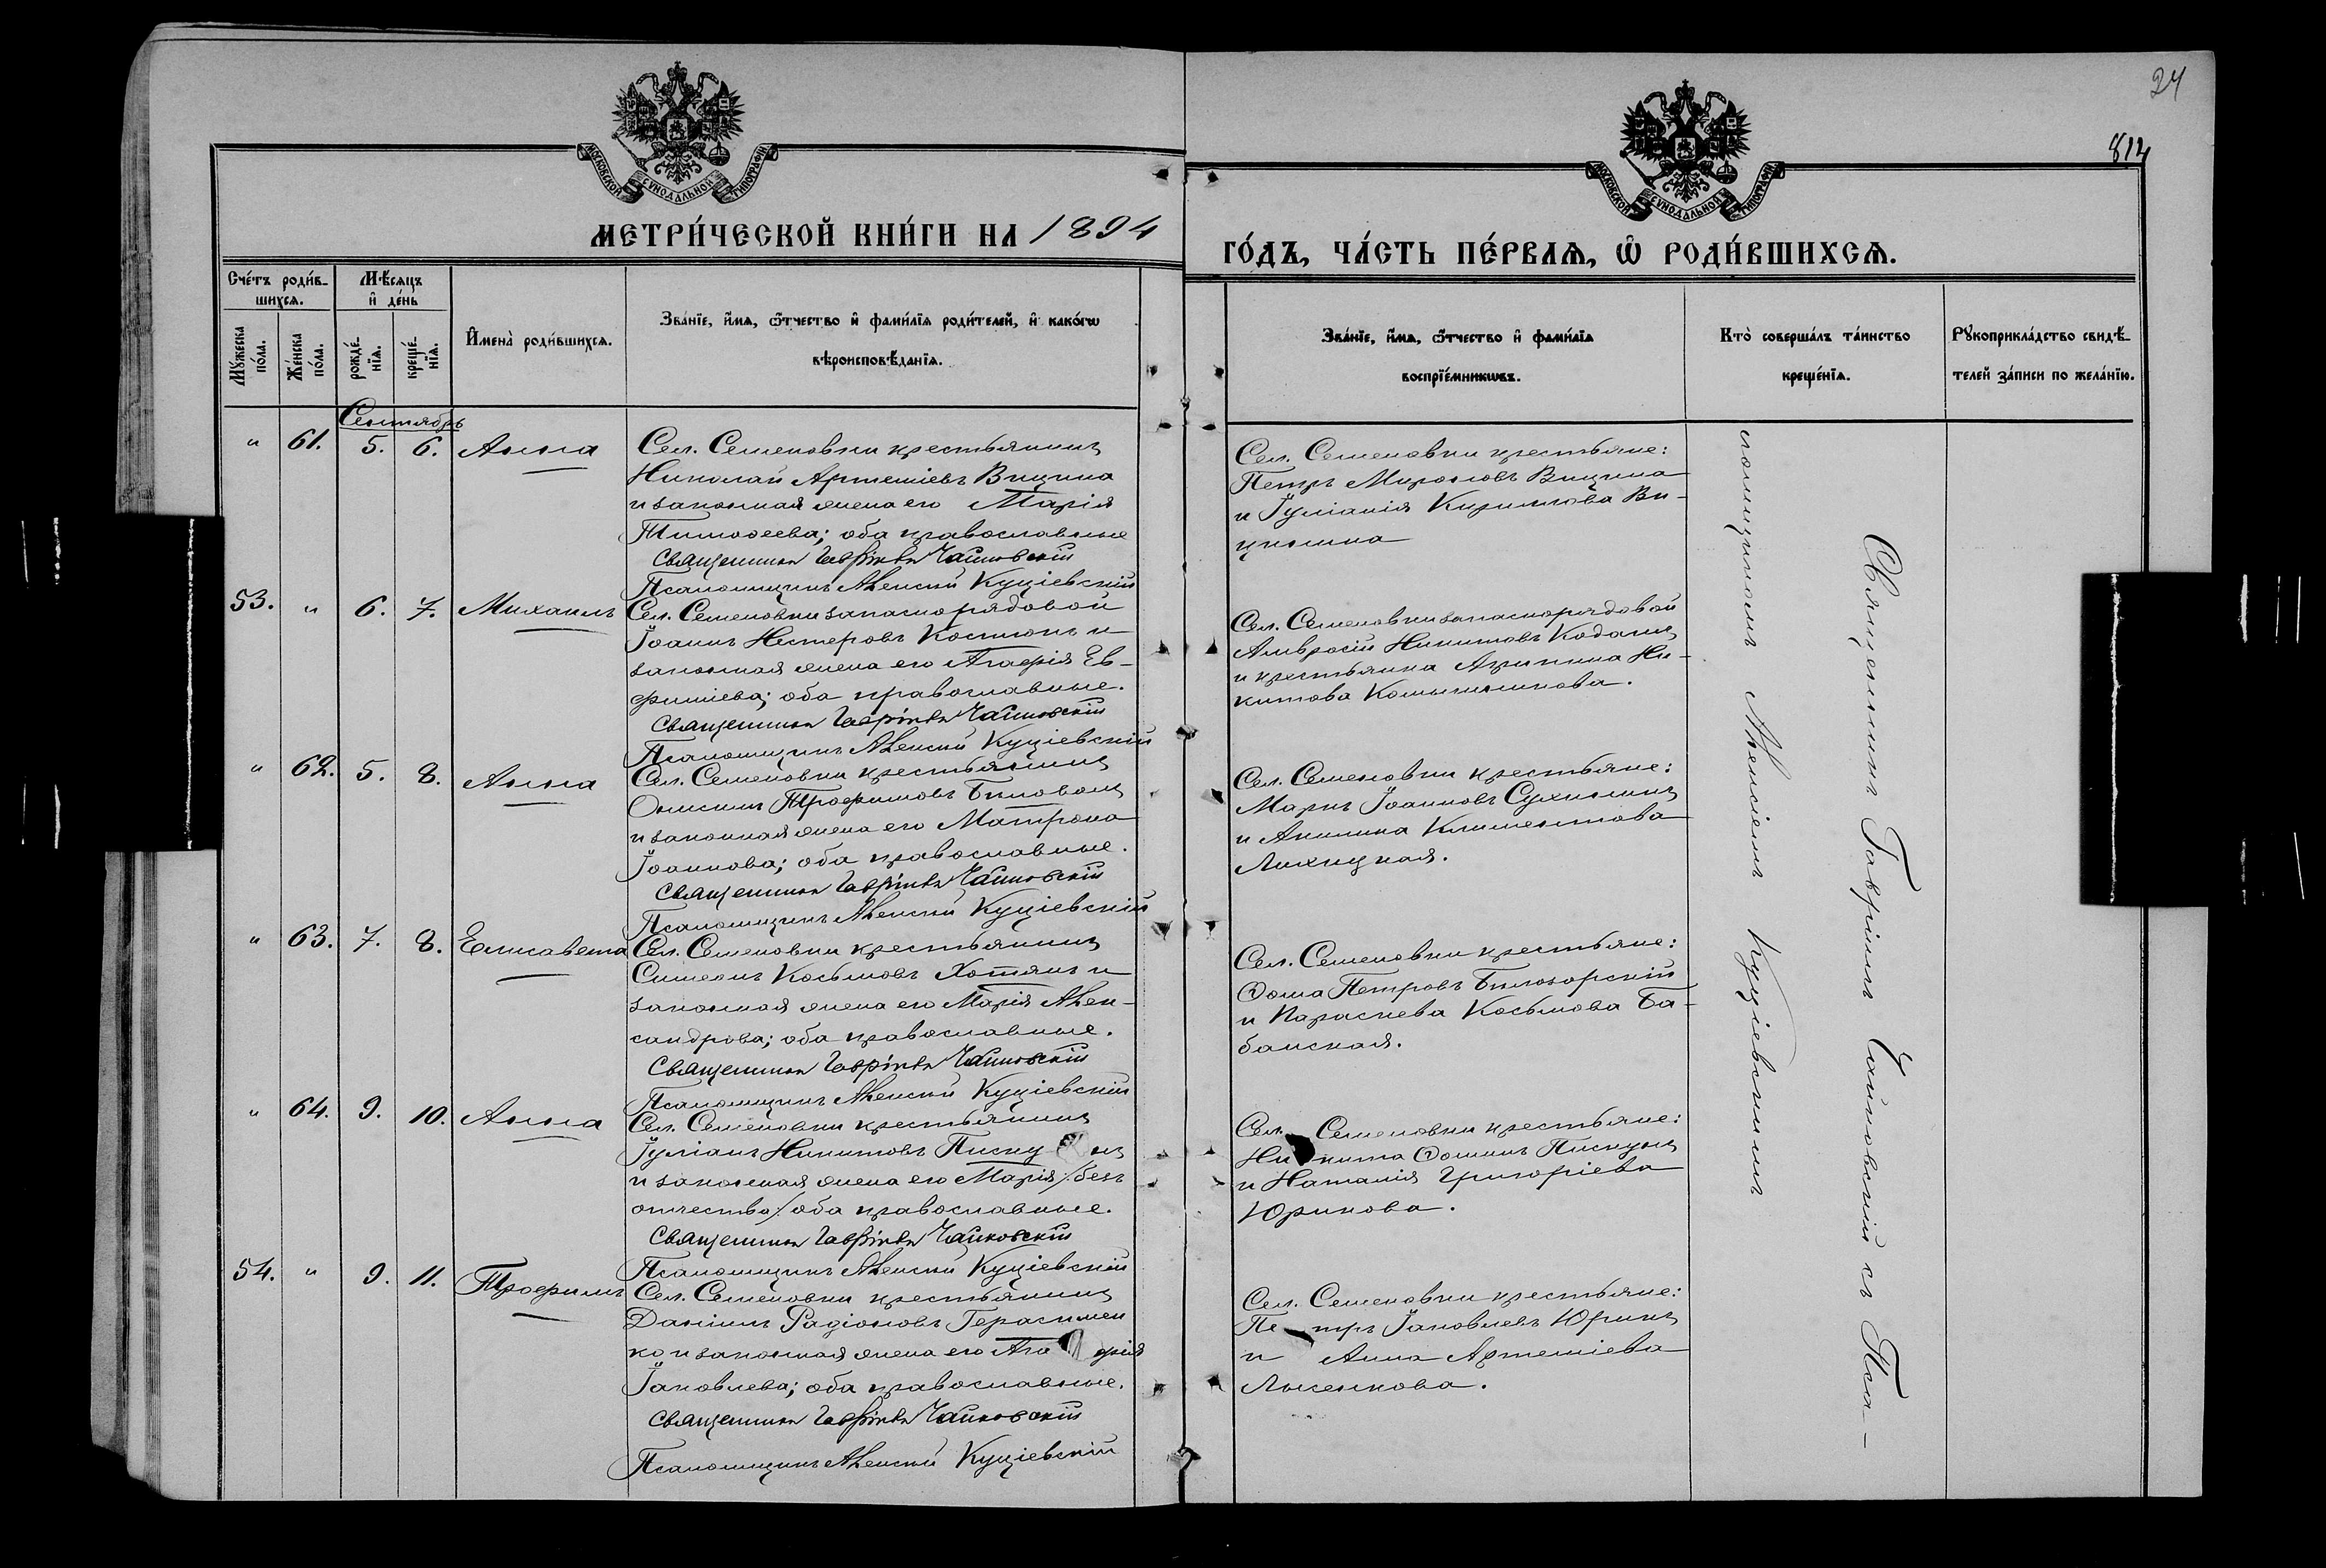 24
814
МОСКОВСКОЙ СѴНОДАЛЬНОЙ ТИПОГРАФІИ
МОСКОВСКОЙ СѴНОДАЛЬНОЙ ТИПОГРАФІИ
МЕТРИ́ЧЕСКОЙ КНИ́ГИ НА 1894
ГО́ДЪ, ЧА́СТЬ ПЕ́РВАѦ, Ѽ РОДИ́ВШИХСѦ.
Сче́тъ роди́в-
шихсѧ.
Мѣ́сѧцъ
и҆ де́нь
Мꙋ́жеска
по́ла.
Же́нска
по́ла.
рожде́-
нїѧ.
креще́-
нїѧ.
И҆мена̀ роди́вшихсѧ.
Зва́нїе, и҆́мѧ, ѻ҆́тчество и҆ фами́лїѧ роди́телей, и҆ како́гѡ
вѣроисповѣ́данїѧ.
Зва́нїе, и҆́мѧ, ѻ҆́тчество и҆ фами́лїѧ
воспрїе́мникѡвъ.
Кто̀ соверша́лъ та́инство
креще́нїѧ.
Рꙋкоприкла́дство свидѣ́-
телей за́писи по жела́нїю.
Сентябрь
" 61. 5. 6. Анна
Сел. Семеновки крестьянинъ
Николай Артеміевъ Вицина
и законная жена его Марія
Тимофеева; оба православные
Священникъ Гавріилъ Чайковскій
Псаломщикъ Алексѣй Куціевскій
Сел. Семеновки крестьяне:
Петръ Мироновъ Вицина
и Іуліанія Кириллова Ви-
цинина
53. " 6. 7. Михаилъ
Сел. Семеновки запаснорядовой
Іоаннъ Нестеровъ Костюкъ и
законная жена его Агафія Ев-
фиміева; оба православные.
Священникъ Гавріилъ Чайковскій
Псаломщикъ Алексѣй Куціевскій
Сел. Семеновки запаснорядовой
Амвросій Никитовъ Коданъ
и крестьянка Акилина Ни-
китова
" 62. 5. 8. Анна
Сел. Семеновки крестьянинъ
Онисимъ Трофимовъ Биловолъ
и законная жена его Матрона
Іоаннова; оба православные.
Священникъ Гавріилъ Чайковскій
Псаломщикъ Алексѣй Куціевскій
Сел. Семеновки крестьяне:
Маркъ Іоанновъ Сухининъ
и Акилина Климентова
Лихицкая.
" 63. 7. 8. Елисавета
Сел. Семеновки крестьянинъ
Симеонъ Косьмовъ Хотянъ и
законная жена его Марія Алек-
сандрова; оба православные.
Священникъ Гавріилъ Чайковскій
Псаломщикъ Алексѣй Куціевскій
Сел. Семеновки крестьяне:
Ѳома Петровъ Билозорскій
и Параскева Косьмова Ба-
банская.
" 64. 9. 10. Анна
Сел. Семеновки крестьянинъ
Іуліанъ Никитовъ Пискунъ
и законная жена его Марія /:безъ
отчества/: оба православные.
Священникъ Гавріилъ Чайковскій
Псаломщикъ Алексѣй Куціевскій
Сел. Семеновки крестьяне:
Никита Ѳоминъ Пискунъ
и Наталія Григоріева
Юрикова.
54. " 9. 11. Трофимъ
Сел. Семеновки крестьянинъ
Даніилъ Радіоновъ Герасимен
ко и законная жена его Агафія
Іаковлева; оба православные.
Священникъ Гавріилъ Чайковскій
Псаломщикъ Алексѣй Куціевскій
Сел. Семеновки крестьяне:
Петръ Іаковлевъ Юрикъ
и Анна Артеміева
Лысенкова.
Священникъ Гавріилъ Чайковскій съ Пса-
ломщикомъ Алексіемъ Куціевскимъ